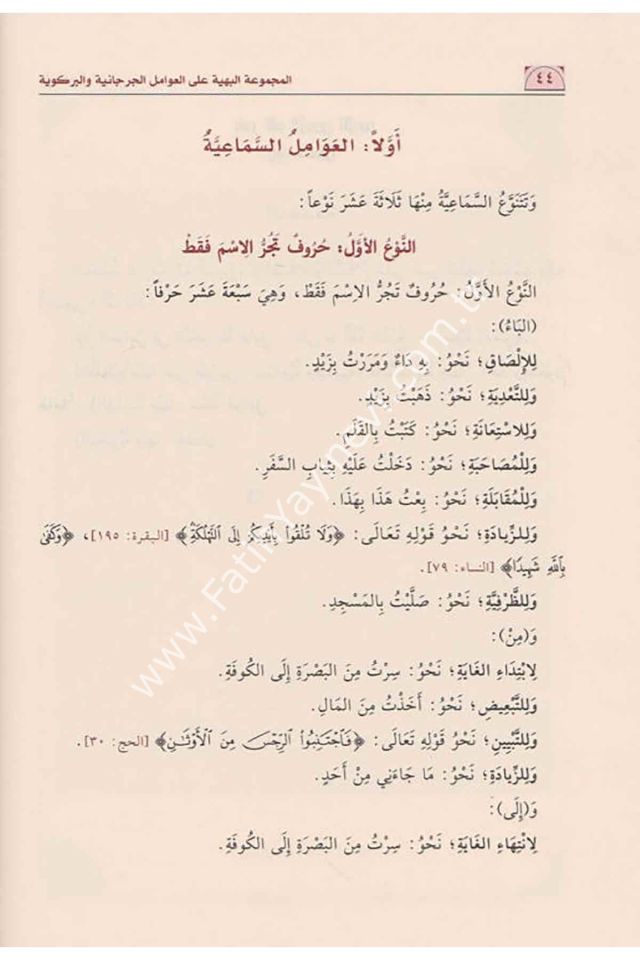 المجموعة البهية على العوامل الجرجانية والبركوية
٤٤
أَوَّلاً: العَوَامِلُ السَّمَاعِيَّةُ
وَتَتَنَوَّعُ السَّمَاعِيَّةُ مِنْهَا ثَلَاثَةَ عَشَرَ نَوْعاً:
النَّوْعُ الأَوَّلُ: حُرُوفٌ تَجُرُّ الِاسْمَ فَقَطْ
النَّوْعُ الأَوَّلُ: حُرُوفٌ تَجُرُّ الِاسْمَ فَقَطْ، وَهِيَ سَبْعَةَ عَشَرَ حَرْفاً:
(البَاءُ):
لِلإِلْصَاقِ؛ نَحْوُ: بِهِ دَاءٌ وَمَرَرْتُ بِزَيْدٍ.
وَلِلتَّعْدِيَةِ؛ نَحْوُ: ذَهَبْتُ بِزَيْدٍ.
وَلِلاسْتِعَانَةِ؛ نَحْوُ: كَتَبْتُ بِالقَلَمِ.
وَلِلْمُصَاحَبَةِ؛ نَحْوُ: دَخَلْتُ عَلَيْهِ بِثِيَابِ السَّفَرِ.
وَلِلْمُقَابَلَةِ؛ نَحْوُ: بِعْتُ هَذَا بِهَذَا.
وَلِلزِّيَادَةِ؛ نَحْوُ قَوْلِهِ تَعَالَى: ﴿وَلَا تُلْقُوا۟ بِأَيْدِيكُمْ إِلَى ٱلتَّهْلُكَةِ﴾ [البقرة: ١٩٥]، ﴿وَكَفَىٰ
بِٱللَّهِ شَهِيدًا﴾ [النساء: ٧٩].
وَلِلظَّرْفِيَّةِ؛ نَحْوُ: صَلَّيْتُ بِالمَسْجِدِ.
وَ(مِنْ):
لِابْتِدَاءِ الغَايَةِ؛ نَحْوُ: سِرْتُ مِنَ البَصْرَةِ إِلَى الكُوفَةِ.
وَلِلتَّبْعِيضِ؛ نَحْوُ: أَخَذْتُ مِنَ المَالِ.
وَلِلتَّبْيِينِ؛ نَحْوُ قَوْلِهِ تَعَالَى: ﴿فَٱجْتَنِبُوا۟ ٱلرِّجْسَ مِنَ ٱلْأَوْثَٰنِ﴾ [الحج: ٣٠].
وَلِلزِّيَادَةِ؛ نَحْوُ: مَا جَاءَنِي مِنْ أَحَدٍ.
وَ(إِلَى):
لِانْتِهَاءِ الغَايَةِ؛ نَحْوُ: سِرْتُ مِنَ البَصْرَةِ إِلَى الكُوفَةِ.
www.FatihYayinevi.com.tr